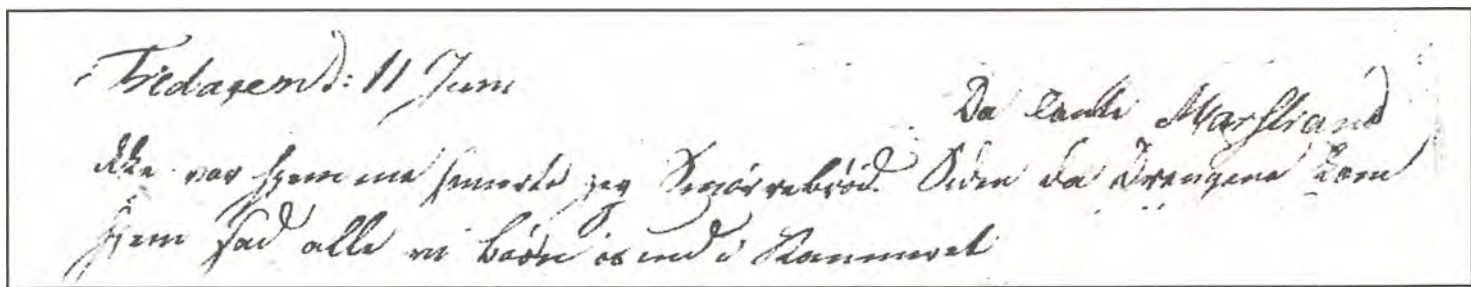 Fredagen d: 11 Juni
Da tante Marstrand
ikke var hjemme smurte jeg Smörrebröd. Siden da Drengene kom
hjem sad alle vi börn os ind i Kammeret